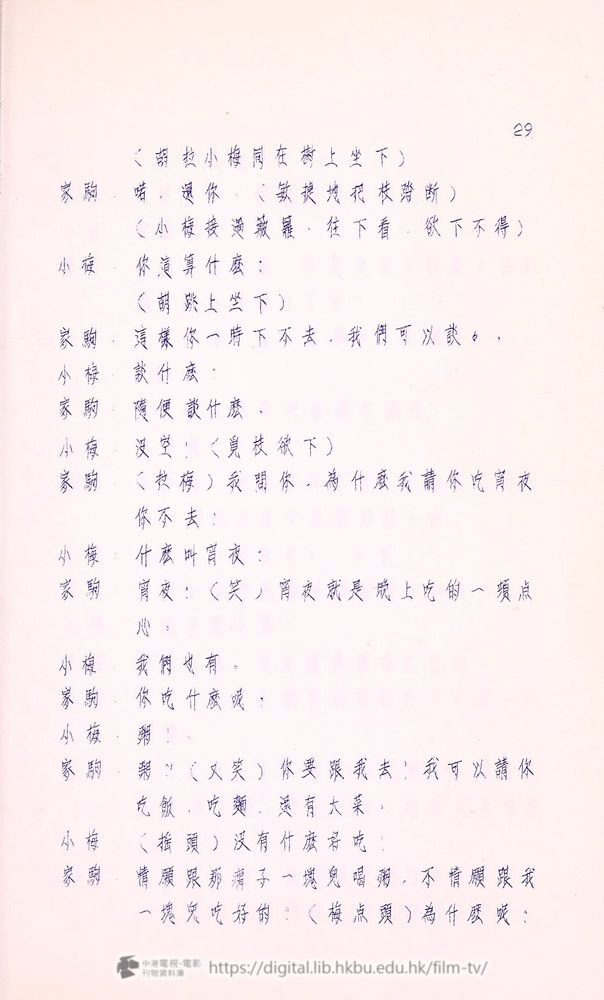 29
（萌拉小梅同在樹上坐下）
家駒．喏．還你．（敏捷地把枝弩断）
（小梅接過皺羅．往下看．欲下不得）
小梅．你這算什麽？
（萌跳上坐下）
家駒．這樣你一時下不去．我們可以談々．
小梅．談什麽？
家駒．隨便談什麽．
小梅．没空！（覓枝欲下）
家駒．（拉梅）我問你．為什麽我請你吃宵夜
你不去？
小梅．什麽叫宵夜？
家駒．宵夜？（笑）宵夜就是晚上吃的一頓点
心．
小梅．我們也有．
家駒．你吃什麽呢．
小梅．粥！
家駒．粥？（又笑）你要跟我去！我可以請你
吃飯．吃麵．還有大菜．
小梅．（搖頭）没有什麽好吃！
家駒．情願跟那瘸子一塊兒喝粥．不情願跟我
一塊兒吃好的？（梅点頭）為什麽呢？
中港電視·電影
刊物資料庫
https://digital.lib.hkbu.edu.hk/film-tv/